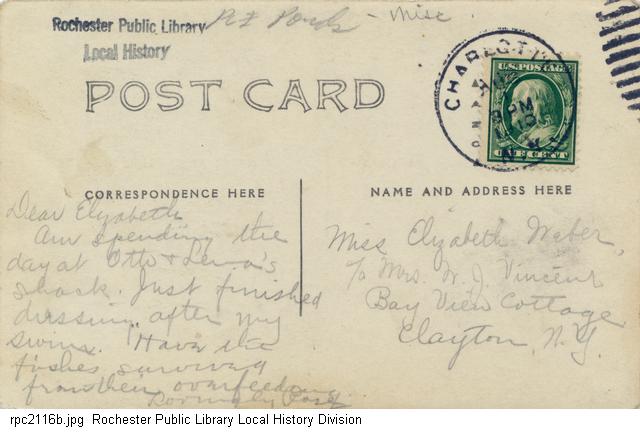 Rochester Public Library
Local History
Misc
POST CARD
CHARLOTTE
U.S. POSTAGE
PM
N.Y.
CORRESPONDENCE HERE
NAME AND ADDRESS HERE
Dear Elizabeth
Am spending the
day at Otto & Lena's
shack. Just finished
dressing after my
swim. Have the
fishes survived
from their overfeeding
Miss Elizabeth Weber,
c/o Mrs. W. J. Vincent
Bay View Cottage
Clayton, N.Y.
rpc2116b.jpg Rochester Public Library Local History Division